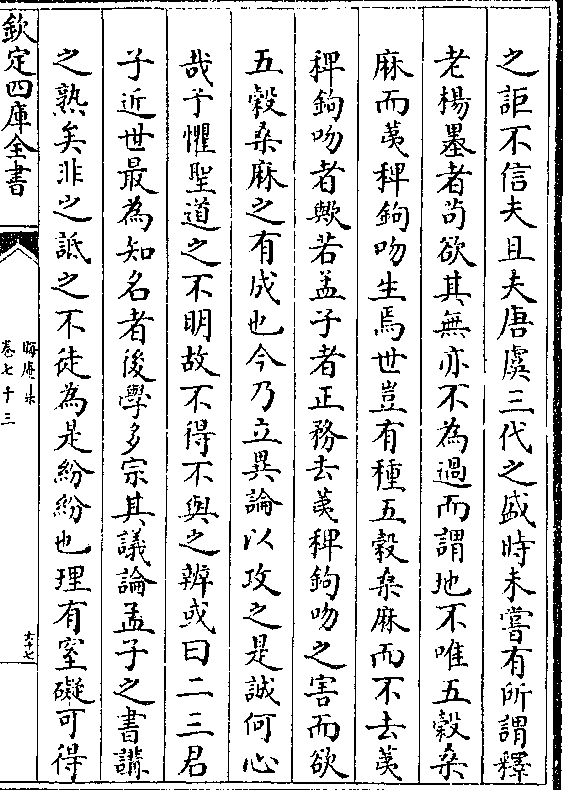 之詎不信夫且夫唐虞三代之盛時未嘗有所謂釋
老楊墨者苟欲其無亦不為過而謂地不唯五穀桑
麻而荑稗鉤吻生焉世豈有種五穀桑麻而不去荑
稗鉤吻者歟若孟子者正務去荑稗鉤吻之害而欲
五穀桑麻之有成也今乃立異論以攻之是誠何心
哉予懼聖道之不明故不得不與之辨或曰二三君
子近世最為知名者後學多宗其議論孟子之書講
之熟矣非之詆之不徒為是紛紛也理有窒礙可得
欽定四庫全書
晦庵集
卷七十三
六十七